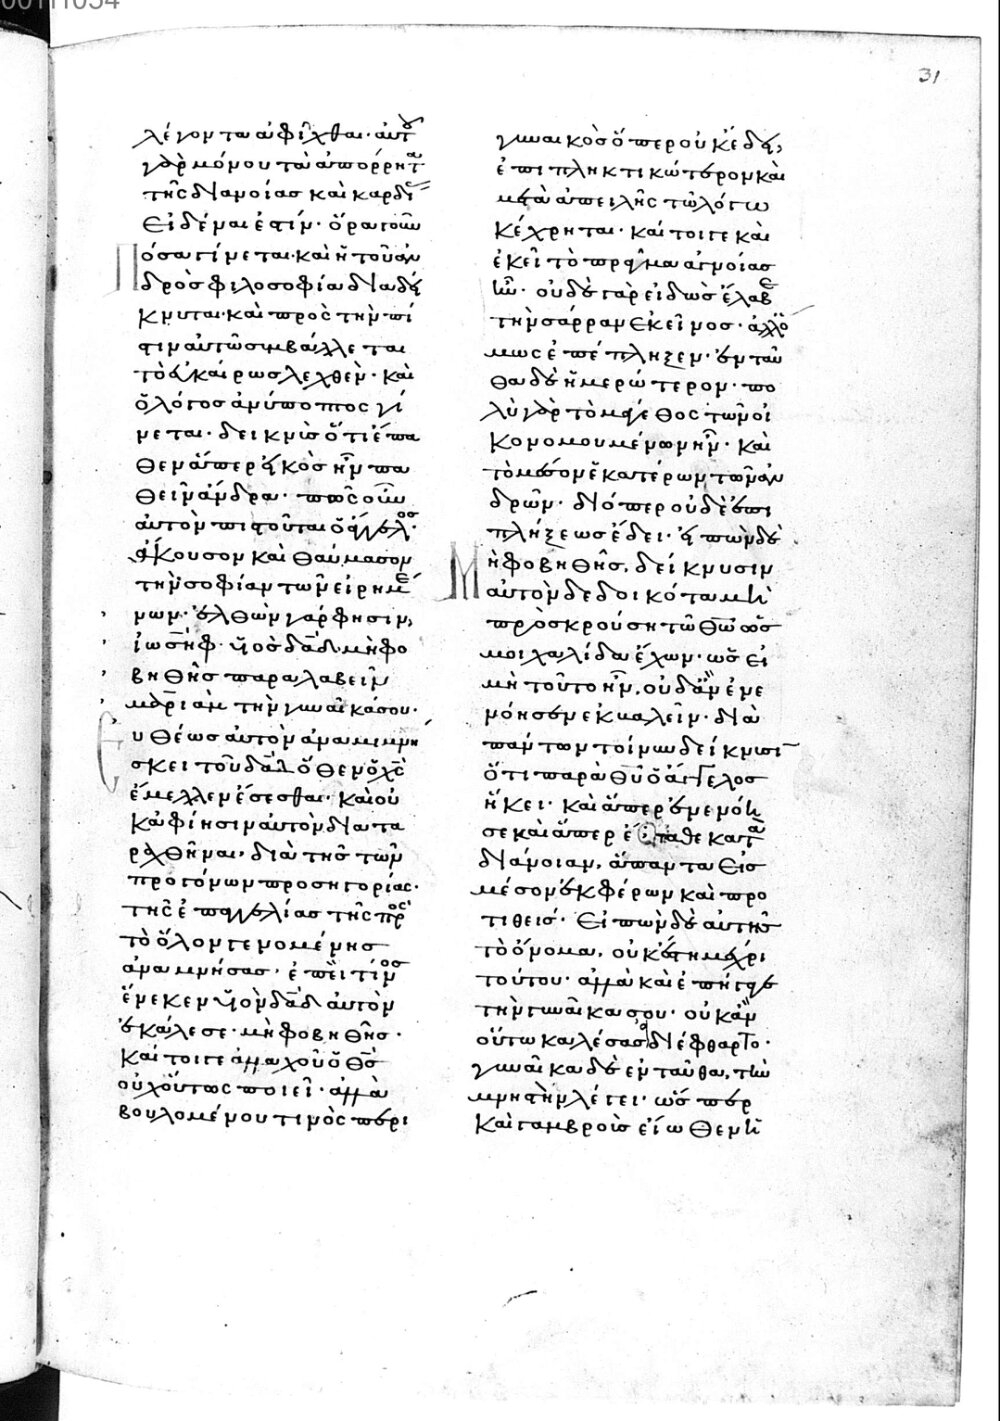 31
λέγοντα ἀφῖχθαι· αὐτοῦ
γὰρ μόνου τὰ ἀπόρρητα
τῆς διανοίας καὶ καρδίας
εἰδέναι ἐστίν· ὅρα γοῦν
πόσα γίνεται· καὶ ἡ τοῦ ἀν
δρὸς φιλοσοφία διαδεί
κνυται· καὶ πρὸς τὴν πί
στιν αὐτῶ συμβάλλεται
τὸ εὐκαίρως λεχθέν· καὶ
ὁ λόγος ἀνύποπτος γί
νεται· δεικνὺς ὅτι ἔπα
θεν ἅπερ εἰκὸς ἦν πα
θεῖν ἄνδρα· πῶς οὖν
αὐτὸν πιστοῦται ὁ ἄγγελος·
ἄκουσον καὶ θαύμασον
τὴν σοφίαν τῶν εἰρημέ
νων· ἐλθὼν γάρ φησιν,
ἰωσὴφ υἱὸς δαδ μὴ φο
βηθῆς παραλαβεῖν
μαριὰμ τὴν γυναῖκά σου·
Εὐθέως αὐτὸν ἀναμιμνή
σκει τοῦ δαδ ὅθεν ὁ χς
ἔμελλεν ἔσεσθαι· καὶ οὐ
κ ἀφίησιν αὐτὸν διατα
ραχθῆναι, διὰ τῆς τῶν
προγόνων προσηγορίας·
τῆς ἐπαγγελίας τῆς πρὸς
τὸ ὅλον γενομένης
ἀναμνήσας· ἐπεὶ τίνος
ἕνεκεν υἱὸν δαδ αὐτὸν
ἐκάλεσε· μὴ φοβηθῆς·
καίτοιγε ἀλλαχοῦ ὁ θς
οὐχ οὕτως ποιεῖ· ἀλλὰ
βουλομένου τινὸς περὶ
γυναικὸς ὅπερ οὐκ ἔδει,
ἐπιπληκτικώτερον καὶ
μετὰ ἀπειλῆς τῶ λόγω
κέχρηται· καίτοιγε καὶ
ἐκεῖ τὸ πρᾶγμα ἀγνοίας
ἦν· οὐδὲ γὰρ εἰδὼς ἔλαβε
τὴν σάρραν ἐκεῖνος· ἀλλ' ὅ
μως ἐπέπληξεν· ἐνταῦ
θα δὲ ἡμερώτερον· πο
λὺ γὰρ τὸ μέγεθος τῶν οἰ
κονομουμένων ἦν· καὶ
τὸ μέσον ἑκατέρων τῶν ἀν
δρῶν· διόπερ οὐδὲ ἐπι
πλήξεως ἔδει· εἰπὼν δὲ
μὴ φοβηθῆς, δείκνυσιν
αὐτὸν δεδοικότα μὴ
πρὸσκρούση τῶ θω ὡς
μοιχαλίδα ἔχων· ὡς εἰ
μὴ τοῦτο ἦν, οὐδ' ἂν ἐνε
νόησεν ἐκβαλεῖν· διὰ
πάντων τοίνυν δείκνυσιν
ὅτι παρὰ θυ ὁ ἄγγελος
ἥκει· καὶ ἅπερ ἐνενόη
σε καὶ ἅπερ ἔπαθε κατὰ
διάνοιαν, ἅπαντα εἰς
μέσον ἐκφέρων καὶ προ
τιθείς· εἰπὼν δὲ αὐτῆς
τὸ ὄνομα, οὐκ ἔστη μέχρι
τούτου· ἀλλὰ καὶ ἐπήγαγε
τὴν γυναῖκα σου· οὐκ ἂν
οὕτω καλέσας εἰ διέφθαρτο·
γυναῖκα δὲ ἐνταῦθα, τὴν
μνηστὴν λέγει· ὥσπερ
καὶ γαμβροὺς εἴωθεν ἡ